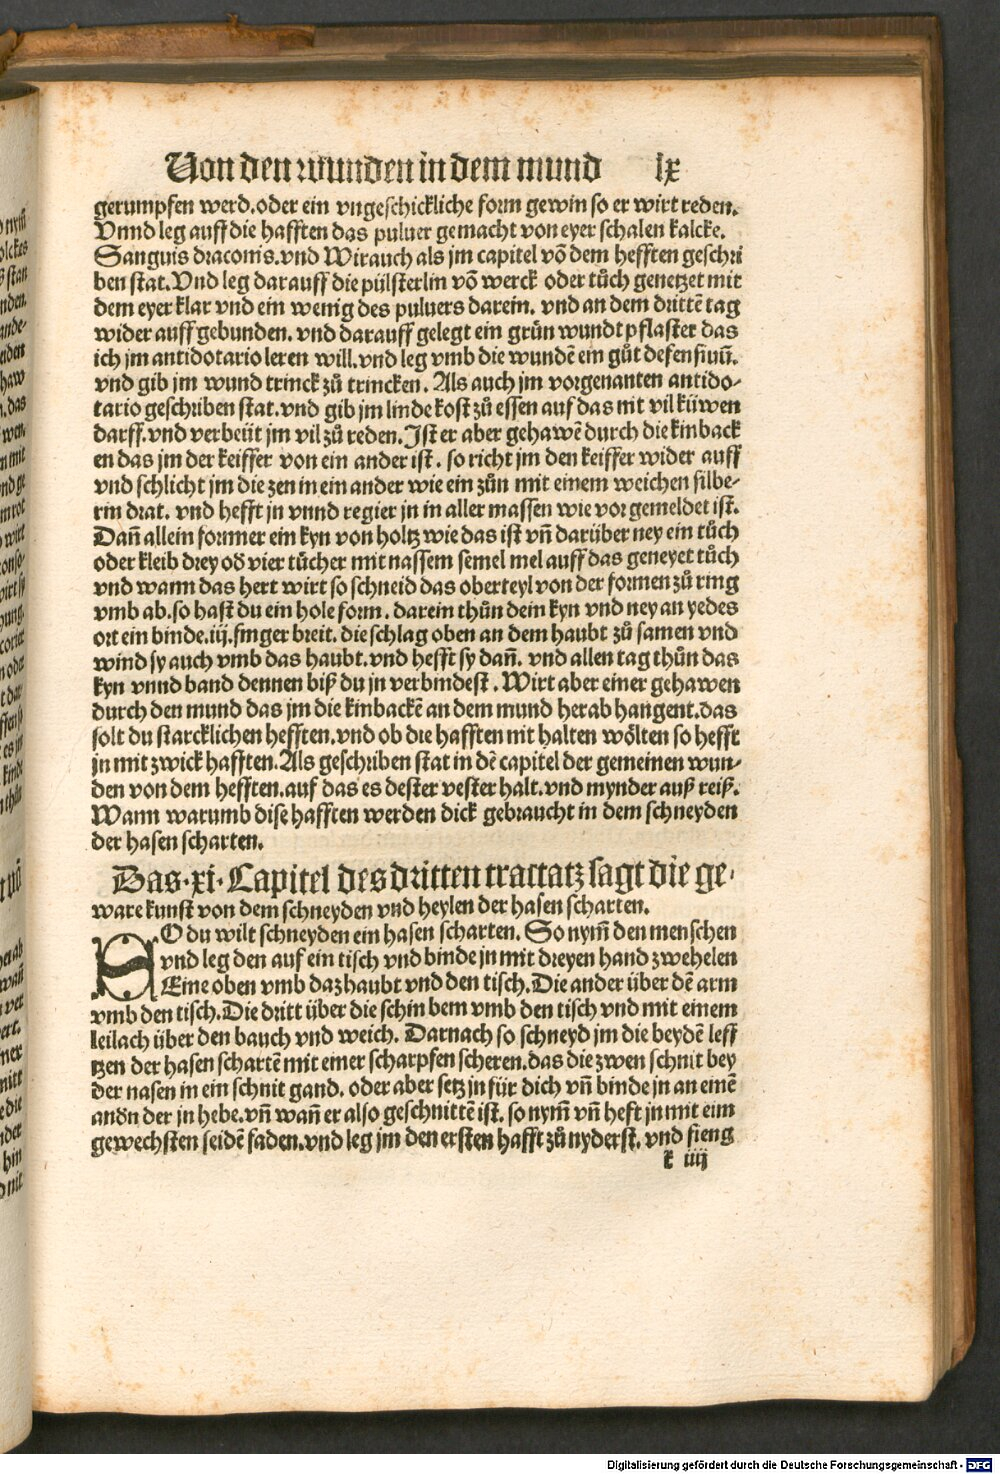 Von den wunden in dem mund lx
gerumpfen werd. oder ein vngeschickliche form gewin so er wirt reden.
Vnnd leg auff die hafften das puluer gemacht von eyer schalen kalcke.
Sanguis draconis. vnd Wirauch als jm capitel võ dem hefften geschri
ben stat. Vnd leg darauff die pülsterlin võ werck oder tůch genetzet mit
dem eyer klar vnd ein wenig des puluers darein. vnd an dem drittē tag
wider auff gebunden. vnd darauff gelegt ein grün wundt pflaster das
ich jm antidotario leren will. vnd leg vmb die wundē ein gůt defensiuū.
vnd gib jm wund trinck zů trincken. Als auch jm vorgenanten antido-
tario geschriben stat. vnd gib jm linde kost zů essen auf das nit vil küwen
darff. vnd verbeüt jm vil zů reden. Ist er aber gehawē durch die kinback
en das jm der keiffer von ein ander ist. so richt jm den keiffer wider auff
vnd schlicht jm die zen in ein ander wie ein zůn mit einem weichen silbe-
rin drat. vnd hefft jn vnnd regier jn in aller massen wie vor gemeldet ist.
Dañ allein formier ein kyn von holtz wie das ist vñ darüber ney ein tůch
oder kleib drey od̕ vier tücher mit nassem semel mel auff das geneyet tůch
vnd wann das hert wirt so schneid das oberteyl von der formen zů ring
vmb ab. so hast du ein hole form. darein thůn dein kyn vnd ney an yedes
ort ein binde. iij. finger breit. die schlag oben an dem haubt zů samen vnd
wind sy auch vmb das haubt. vnd hefft sy dañ. vnd allen tag thůn das
kyn vnnd band dennen biß du jn verbindest. Wirt aber einer gehawen
durch den mund das jm die kinbackē an dem mund herab hangent. das
solt du starcklichen hefften. vnd ob die hafften nit halten wölten so hefft
jn mit zwick hafften. Als geschriben stat in dē capitel der gemeinen wun-
den von dem hefften. auf das es dester vester halt. vnd mynder auß reiß.
Wann warumb dise hafften werden dick gebraucht in dem schneyden
der hasen scharten.
Das .xi. Capitel des dritten tractatz sagt die ge-
ware kunst von dem schneyden vnd heylen der hasen scharten.
SO du wilt schneyden ein hasen scharten. So nym̄ den menschen
vnd leg den auf ein tisch vnd binde jn mit dreyen hand zwehelen
Eine oben vmb daz haubt vnd den tisch. Die ander über dē arm
vmb den tisch. Die dritt über die schin bem vmb den tisch vnd mit einem
leilach über den bauch vnd weich. Darnach so schneyd jm die beydē leff
tzen der hasen schartē mit einer scharpfen scheren. das die zwen schnit bey
der nasen in ein schnit gand. oder aber setz jn für dich vñ binde jn an einē
and̕n der jn hebe. vñ wañ er also geschnittē ist. so nym̄ vñ heft jn mit eim
gewechsten seidē faden. vnd leg jm den ersten hafft zů nyderst. vnd fieng
k iiij
Digitalisierung gefördert durch die Deutsche Forschungsgemeinschaft - DFG